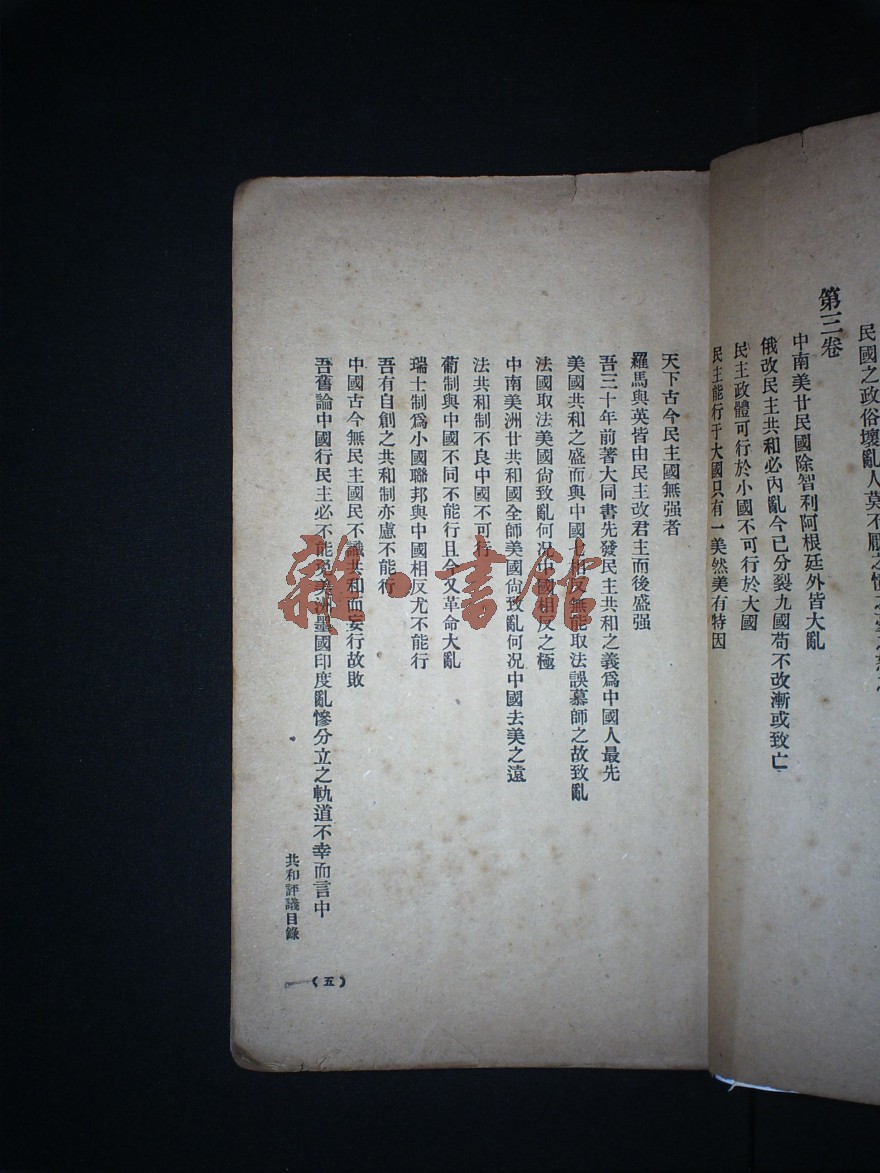 民國之政俗壞亂人莫不厭之
第三卷
中南美廿民國除智利阿根廷外皆大亂
俄改民主共和必內亂今已分裂九國苟不改漸或致亡
民主政體可行於小國不可行於大國
民主能行于大國只有一美然美有特因
天下古今民主國無强者
羅馬與英皆由民主改君主而後盛强
吾三十年前著大同書先發民主共和之義爲中國人最先
美國共和之盛而與中國七相反無能取法誤慕師之故致亂
法國取法美國尙致亂何况中國相反之極
中南美洲廿共和國全師美國尙致亂何況中國去美之遠
法共和制不良中國不可行
葡制與中國不同不能行且今又革命大亂
瑞士制爲小國聯邦與中國相反尤不能行
吾有自創之共和制亦慮不能行
中國古今無民主國民不識共和而妄行故敗
吾舊論中國行民主必不能免美洲墨國印度亂慘分立之軌道不幸而言中
共和評議目錄
(五)
雜·書館